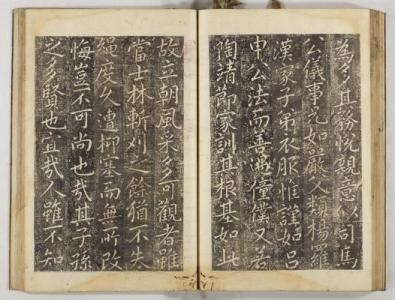 為多其務悅親意以司馬
公儀事兄如嚴父類楊羅
漢家子弟衣服惟謹如呂
申公法而善御僮僕又若
陶靖節家訓其根基如此
故立朝風采多可觀者雖
當士林斬刈之餘猶不失
縕度久遭抑塞而無所改
悔豈不可尚也哉其子孫
之多賢也宜哉人雖不知